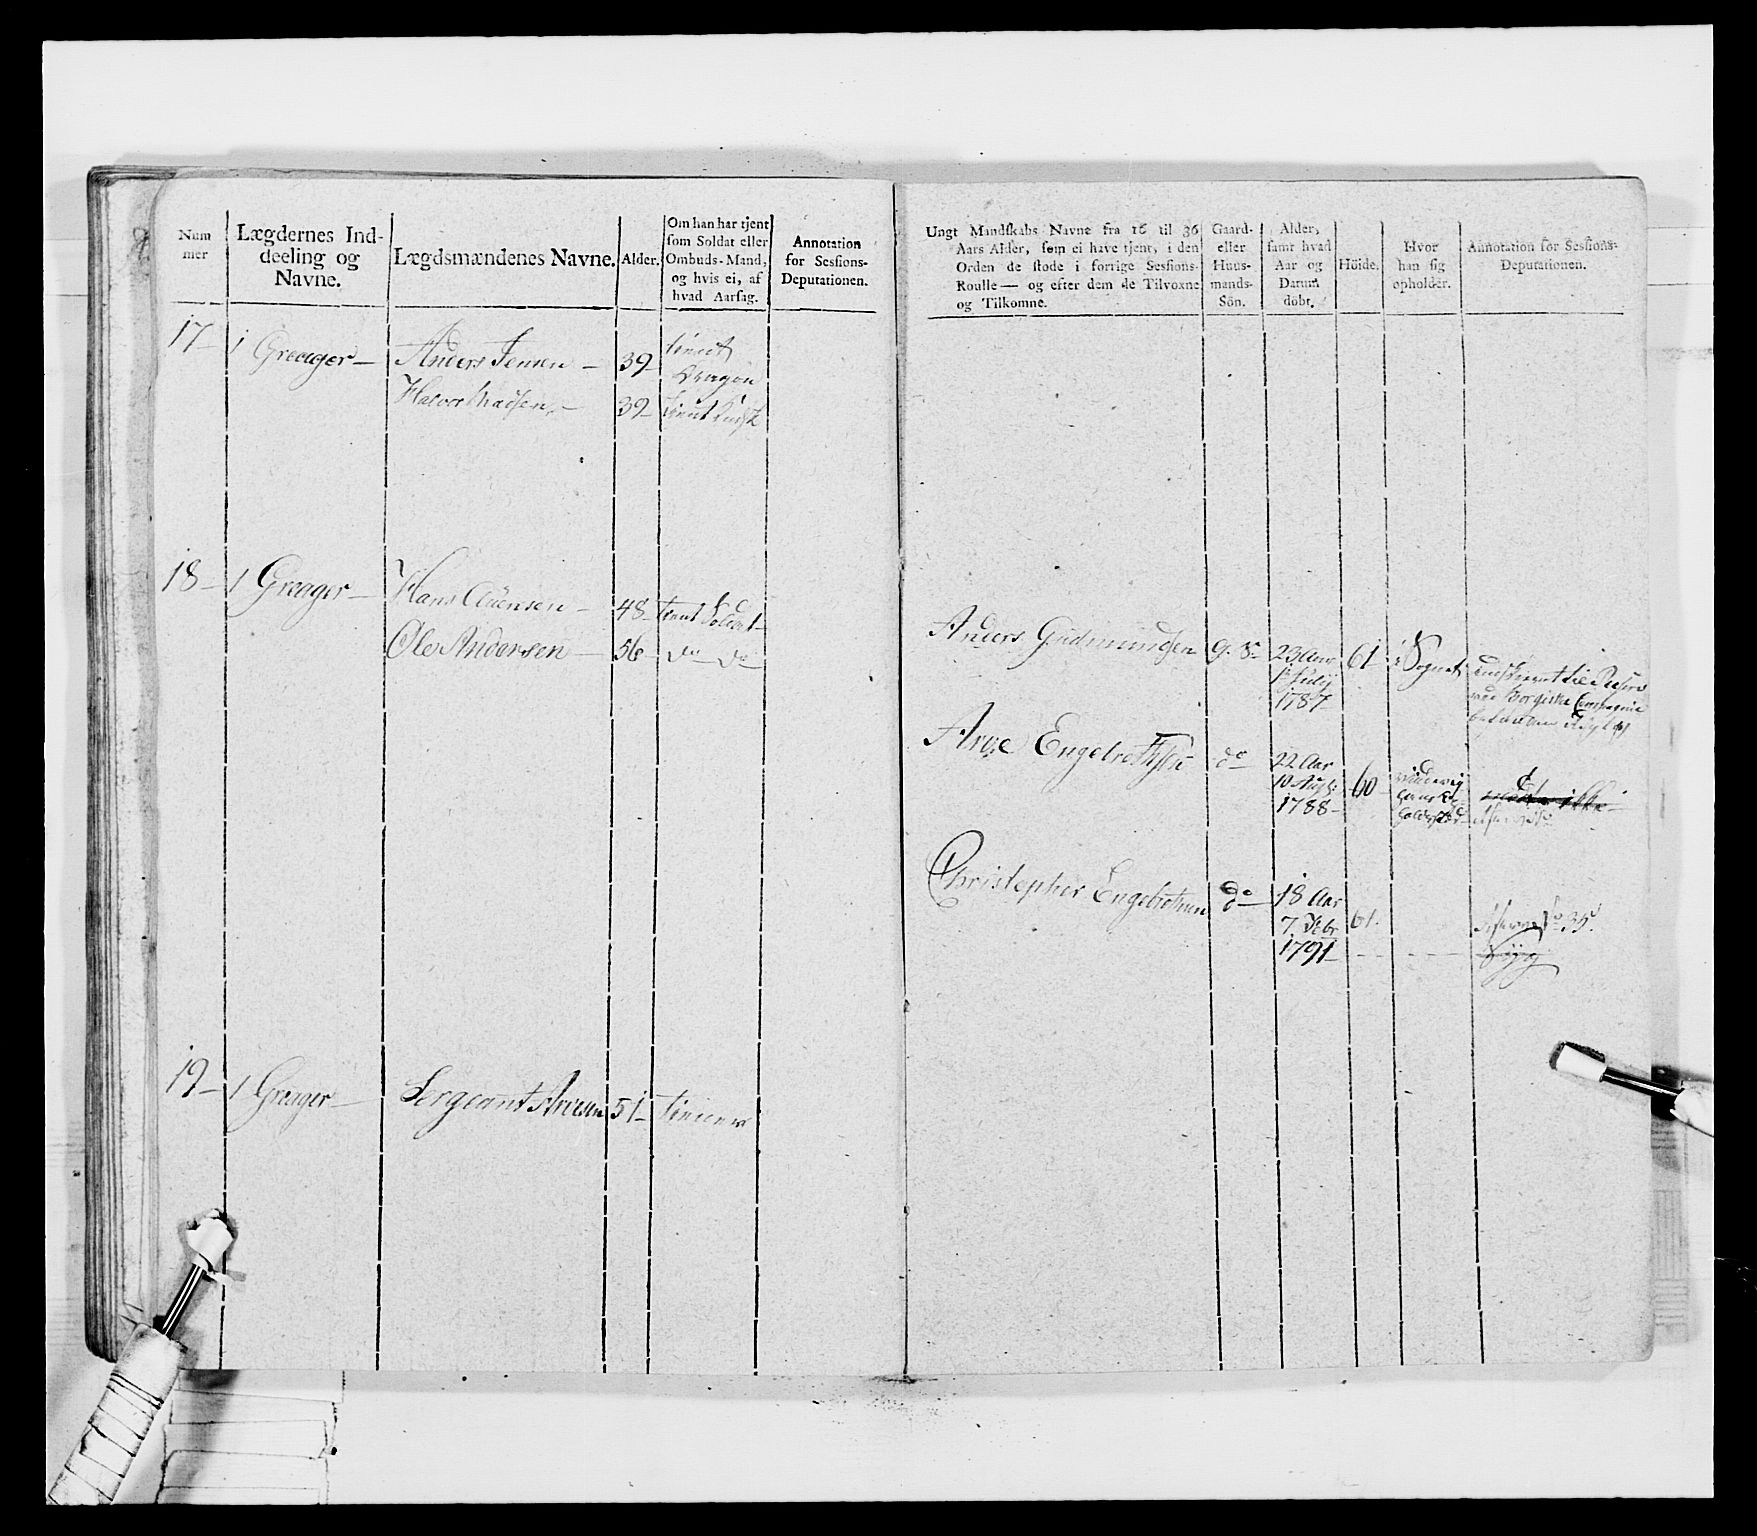 Num
mer
Lægdernes Ind-
deeling og
Navne.
Lægdsmændenes Navne.
Alder.
Om han har tjent
som Soldat eller
Ombuds-Mand,
og hvis ei, af
hvad Aarsag.
Annotation
for Sessions-
Deputationen.
17 1 Greager Anders Jensen 39 tient
Dragon
Halvor Madsen 39 tient
18 1 Greager Hans Clausen 48 tient Soldat
Ole Andersen 56 do do
19 1 Greager Sergeant Arvesen 51
Ungt Mandskabs Navne fra 16 til 36
Aars Alder, som ei have tjent, i den
Orden de stode i forrige Sessions-
Roulle — og efter dem de Tilvoxne
og Tilkomne.
Gaard-
eller
Huus-
mands-
Sön.
Alder,
samt hvad
Aar og
Datum
döbt.
Höide.
Hvor
han sig
opholder.
Annotation for Sessions-
Deputationen.
Anders Gudmundsen G. S. 23 Aar 61 i Sognet
July
1787
Arve Engebrethsen do 22 Aar
10 Aug 60
1788
Christopher Engebrethsen do 18 Aar
7 Febr 61
1791